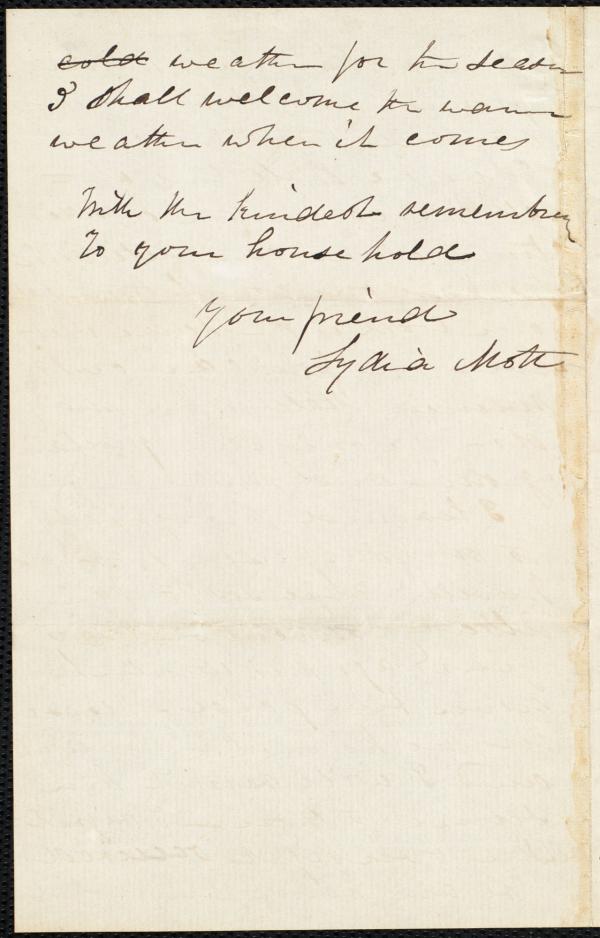 cold weather for the season
I shall welcome the warm
weather when it comes
With the kindest remembrances
To your household
Your friend
Lydia Mott